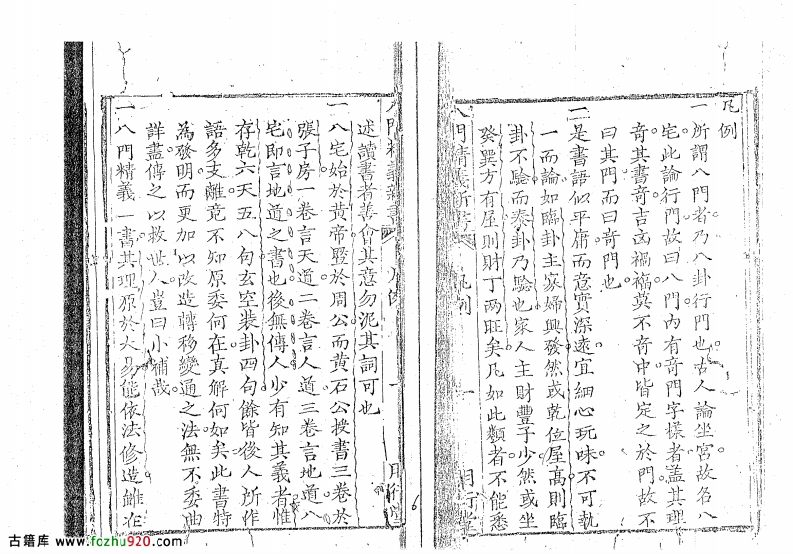 凡例
一所謂八門者乃八卦行門也古人論坐宮故名八
宅此論行門故曰八門內有奇門字樣者蓋其理
奇其書奇吉凶禍福莫不奇中皆定之於門故不
曰其門而曰奇門也
一是書語似平庸而意實深遠宜細心玩味不可執
一而論如臨卦主家婦興發然或乾位屋高則臨
卦不驗而泰卦乃驗也家人主財豐子少然或坐
癸巽方有屋則財丁兩旺矣凡如此類者不能悉
八門精義
凡例
一
述讀書者善會其意勿泥其詞可也
一八宅始於黃帝暨於周公而黃石公授書三卷於
張子房一卷言天道二卷言人道三卷言地道八
宅即言地道之書也後無傳人少有知其義者惟
存乾六天五八句玄空裝卦四句餘皆後人所作
語多支離竟不知原委何在真解何如矣此書特
為發明而更加以改造轉移變通之法無不委曲
詳盡傳之以救世人豈曰小補哉
一八門精義一書其理原於大易能依法修造雖在
6
古籍库 www.fozhu920.com